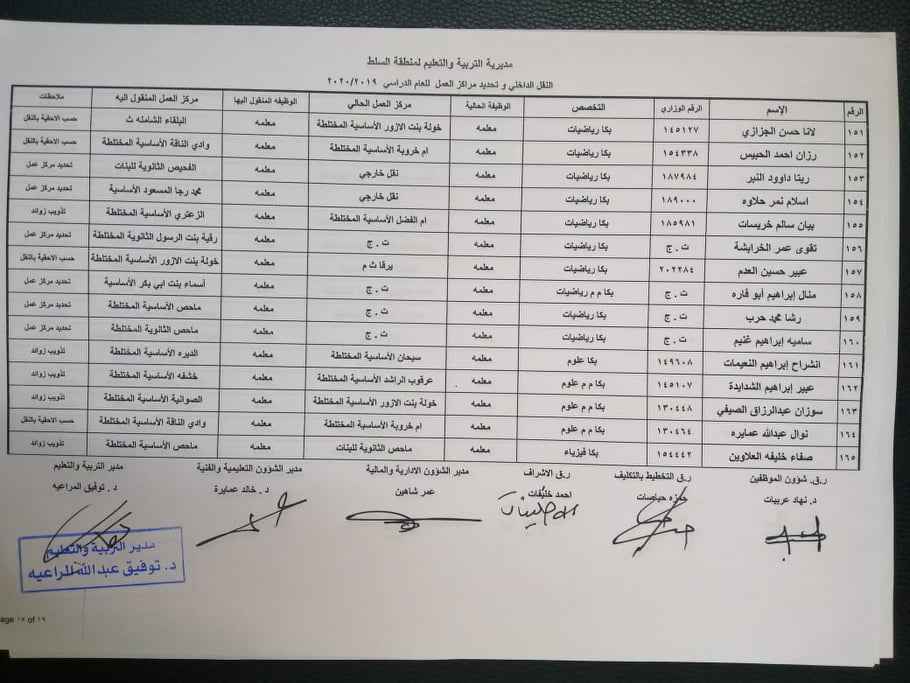 مديرية التربية والتعليم لمنطقة السلط
النقل الداخلي و تحديد مراكز العمل للعام الدراسي ٢٠٢٠/٢٠١٩
الرقم الإسم الرقم الوزاري التخصص الوظيفة الحالية مركز العمل الحالي الوظيفه المنقول اليها مركز العمل المنقول اليه ملاحظات
١٥١ لانا حسن الجزازي ١٤٥١٢٧ بكا رياضيات معلمه خولة بنت الازور الأساسية المختلطة معلمه البلقاء الشامله ث حسب الاحقية بالنقل
١٥٢ رزان احمد الحبيس ١٥٤٣٣٨ بكا رياضيات معلمه ام خروبة الأساسية المختلطة معلمه وادي الناقة الأساسية المختلطة حسب الاحقية بالنقل
١٥٣ ريتا داوود النبر ١٨٧٩٨٤ بكا رياضيات معلمه نقل خارجي معلمه الفحيص الثانوية للبنات تحديد مركز عمل
١٥٤ اسلام نمر حلاوه ١٨٩٠٠٠ بكا رياضيات معلمه نقل خارجي معلمه محمد رجا المسعود الأساسية تحديد مركز عمل
١٥٥ بيان سالم خريسات ١٨٥٩٨١ بكا رياضيات معلمه ام الفضل الأساسية المختلطة معلمه الزعتري الأساسية المختلطة تذويب زوائد
١٥٦ تقوى عمر الخرابشة ت . ج بكا رياضيات معلمه ت . ج معلمه رقية بنت الرسول الثانوية المختلطة تحديد مركز عمل
١٥٧ عبير حسين العدم ٢٠٢٢٨٤ بكا رياضيات معلمه يرقا ث م معلمه خولة بنت الازور الأساسية المختلطة حسب الاحقية بالنقل
١٥٨ منال إبراهيم أبو فاره ت . ج بكا م م رياضيات معلمه ت . ج معلمه أسماء بنت ابي بكر الأساسية تحديد مركز عمل
١٥٩ رشا محمد حرب ت . ج بكا رياضيات معلمه ت . ج معلمه ماحص الأساسية المختلطة تحديد مركز عمل
١٦٠ ساميه إبراهيم غنيم ت . ج بكا رياضيات معلمه ت . ج معلمه ماحص الثانوية المختلطة تحديد مركز عمل
١٦١ انشراح إبراهيم النعيمات ١٤٩٦٠٨ بكا علوم معلمه سيحان الأساسية المختلطة معلمه الديره الأساسية المختلطة تذويب زوائد
١٦٢ عبير إبراهيم الشدايدة ١٤٥١٠٧ بكا م م علوم معلمه عرقوب الراشد الأساسية المختلطة معلمه خشفه الأساسية المختلطة تذويب زوائد
١٦٣ سوزان عبدالرزاق الصيفي ١٣٠٤٤٨ بكا م م علوم معلمه خولة بنت الازور الأساسية المختلطة معلمه الصوانية الأساسية المختلطة تذويب زوائد
١٦٤ نوال عبدالله عمايره ١٣٠٤٦٤ بكا م م علوم معلمه ام خروبة الأساسية المختلطة معلمه وادي الناقة الأساسية المختلطة حسب الاحقية بالنقل
١٦٥ صفاء خليفه العلاوين ١٥٤٤٤٢ بكا فيزياء معلمه ماحص الثانوية للبنات معلمه ماحص الأساسية المختلطة تذويب زوائد
ر.ق. شؤون الموظفين ر.ق التخطيط بالتكليف ر.ق الاشراف مدير الشؤون الادارية والمالية مدير الشؤون التعليمية والفنية مدير التربية والتعليم
د. نهاد عربيات حمزه حياصات احمد خليفات عمر شاهين د . خالد عمايرة د . توفيق المراعيه
مدير التربية والتعليم
د. توفيق عبدالله المراعيه
age ١٥ of ١٩